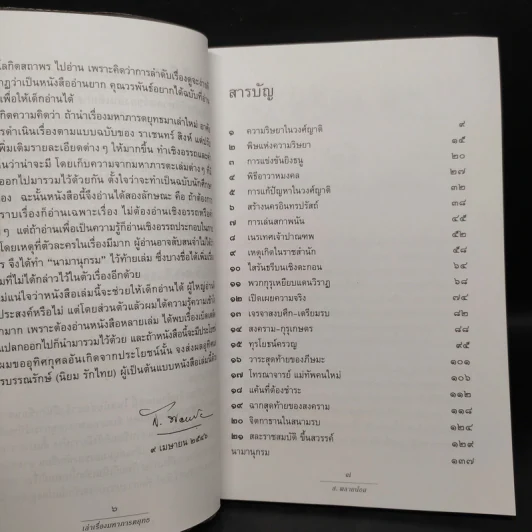 โลกิตสถาพร ไปอ่าน เพราะคิดว่าการลำดับเรื่องดูจะง่าย
ว่าเป็นหนังสืออ่านยาก คุณวรพันธ์อยากได้ฉบับที่
เพื่อให้เด็กอ่านได้
เกิดความคิดว่า ถ้านำเรื่องมหาภารตยุทธมาเล่าใหม่
รดำเนินเรื่องตามแบบฉบับของ ราเชนทร์ สิงห์
เพิ่มเติมรายละเอียดต่าง ๆ ให้มากขึ้น ทำเชิงอรรถและ
นว่าน่าจะมี โดยเก็บความจากมหาภารตะเล่มต่าง ๆ
ออกไปมารวมไว้ด้วยกัน ตั้งใจว่าจะทำเป็นฉบับนักศึกษา
อง ฉะนั้นหนังสือนี้จึงอ่านได้สองลักษณะ คือ ถ้าต้องการ
ราบเรื่องก็อ่านเฉพาะเรื่อง ไม่ต้องอ่านเชิงอรรถหรือ
ๆ แต่ถ้าอ่านเพื่อเป็นความรู้ก็อ่านเชิงอรรถประกอบ
โดยเหตุที่ตัวละครในเรื่องมีมาก ผู้อ่านอาจสับสนจำไม่ได้
จึงได้ทำ “นามานุกรม” ไว้ท้ายเล่ม ซึ่งบางชื่อได้เพิ่ม
มที่ไม่ได้กล่าวไว้ในตัวเรื่องอีกด้วย
ไม่แน่ใจว่าหนังสือเล่มนี้จะช่วยให้เด็กอ่านได้ ผู้ใหญ่อ่าน
ประสงค์หรือไม่ แต่โดยส่วนตัวแล้วผมได้ความรู้ความเข้าใจ
มาก เพราะต้องอ่านหนังสือหลายเล่ม ได้พบเรื่อง
แปลกออกไปก็นำมารวมไว้ด้วย และถ้าหนังสือนี้จะมีประโยชน์
ผมขออุทิศกุศลอันเกิดจากประโยชน์นั้น จงส่งผล
รบรรณรักษ์ (นิยม รักไทย) ผู้เป็นต้นแบบหนังสือเล่มนี้
ส. พลายน้อย
๙ เมษายน ๒๕๔๖
๖
เล่าเรื่องมหาภารตยุทธ
สารบัญ
๑ ความริษยาในวงศ์ญาติ ๙
๒ พิษแห่งความริษยา ๑๕
๓ การแข่งขันยิงธนู ๒๐
๔ พิธีอาวาหมงคล ๒๗
๕ การแก้ปัญหาในวงศ์ญาติ ๓๒
๖ สร้างนครอินทรปรัสถ์ ๓๘
๗ การเล่นสกาพนัน ๔๕
๘ เนรเทศเจ้าปาณฑพ ๕๒
๙ เหตุเกิดในราชสำนัก ๕๘
๑๐ ไสรันธรีบนเชิงตะกอน ๖๔
๑๑ พวกกุรุเหยียบแดนวิราฏ ๖๘
๑๒ เปิดเผยความจริง ๗๔
๑๓ เจรจาสงบศึก-เตรียมรบ ๘๒
๑๔ สงคราม-กุรุเกษตร ๘๘
๑๕ ทุรโยธน์ครวญ ๙๕
๑๖ วาระสุดท้ายของภีษมะ ๑๐๑
๑๗ โทรณาจารย์ แม่ทัพคนใหม่ ๑๐๖
๑๘ แค้นที่ต้องชำระ ๑๑๒
๑๙ ฉากสุดท้ายของสงคราม ๑๑๘
๒๐ จิตกาธานในสนามรบ ๑๒๔
๒๑ สละราชสมบัติ ขึ้นสวรรค์ ๑๒๙
นามานุกรม ๑๓๗
๗
ส. พลายน้อย